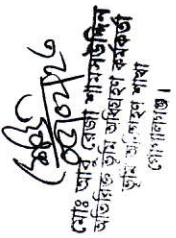 মোঃ আবু রেজা শামসউদ্দিন
অতিরিক্ত ভূমি অধিগ্রহণ কর্মকর্তা
ভূমি অধিগ্রহণ শাখা
গোপালগঞ্জ।